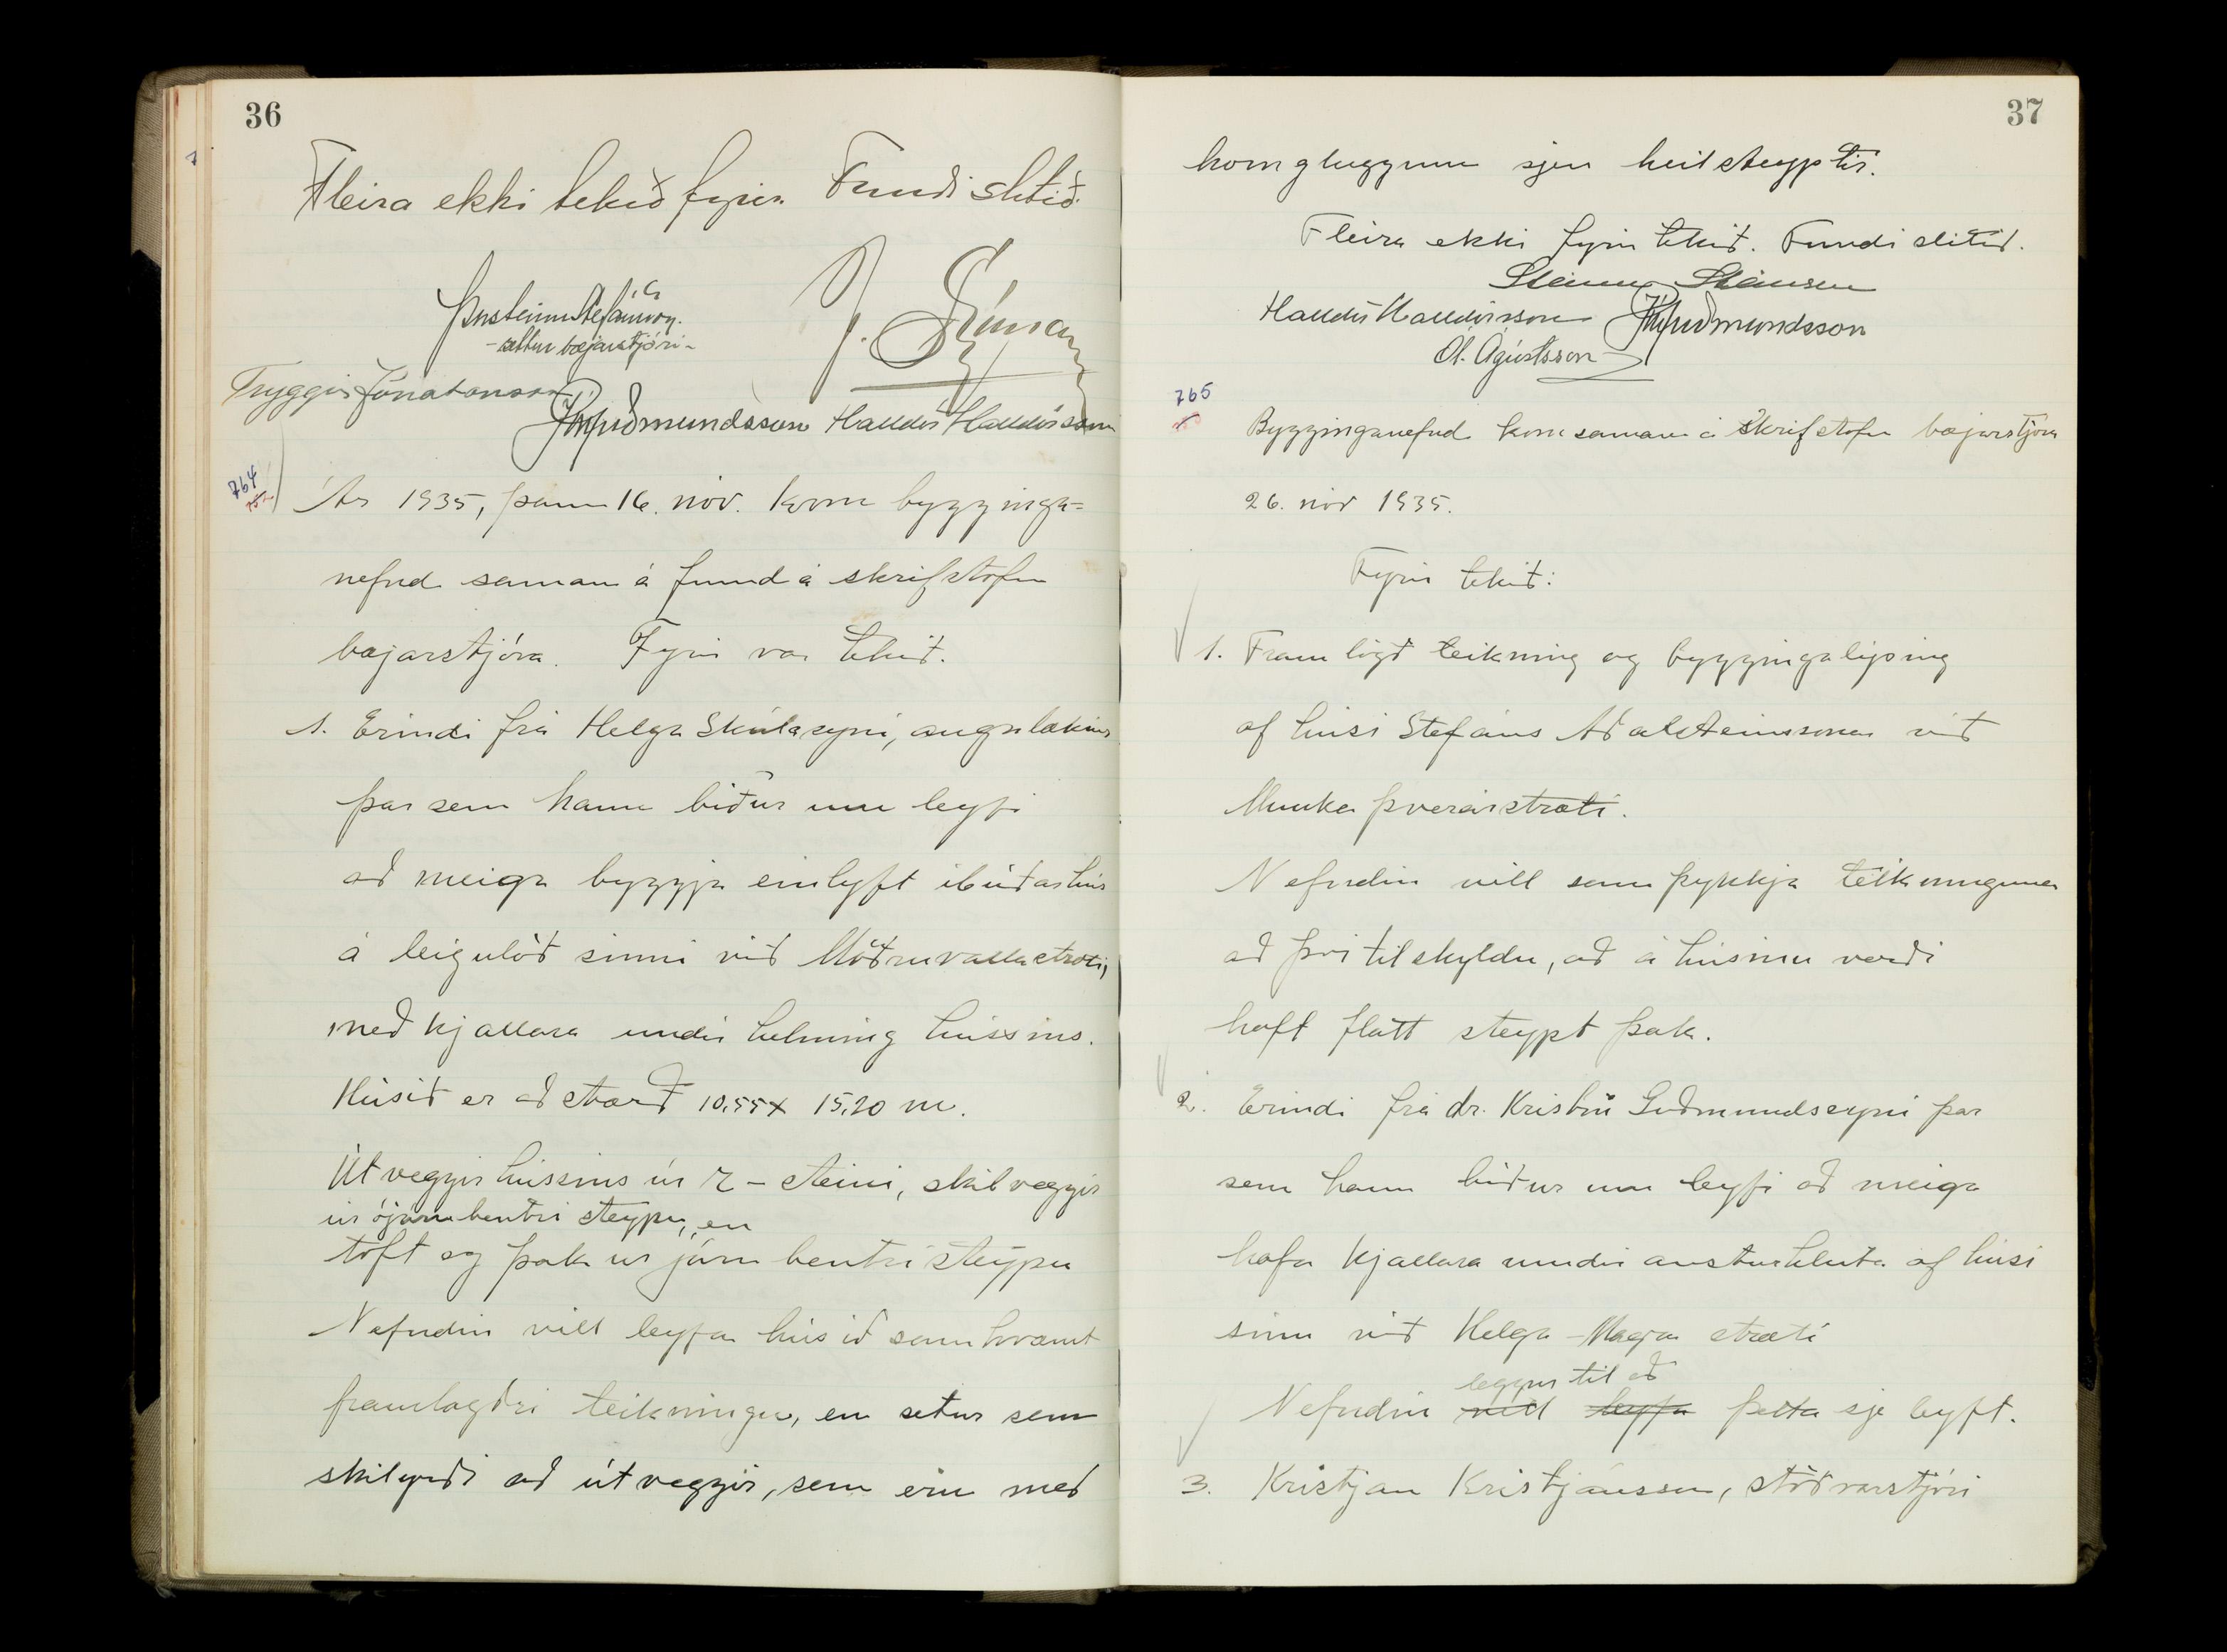 36
Fleira ekki tekið fyrir. Fundi slitið.
Þorsteinn Stefánsson
- settur bæjarstjóri -
Tryggvi Jónatansson
Guðmundsson Halldór Halldórsson
764
Ár 1935, þann 16. nóv. kom bygginga=
nefnd saman á fund á skrifstofu
bæjarstjóra. Fyrir var tekið.
1. Erindi frá Helga Skúlasyni, augnlækni
þar sem hann biður um leyfi
að meiga byggja einlyft íbúðarhús
á leigulóð sinni við Möðruvallastræti,
með kjallara undir helming hússins.
Húsið er að stærð 10,55 x 15,20 m.
Útveggir hússins úr r-steini, skilveggir
úr ójárnbentri steypu, en
tóft og þak úr járnbentri steypu
Nefndin vill leyfa húsið samkvæmt
framlagðri teikningu, en setur sem
skilyrði að útveggir, sem eru með
37
horngluggum sjeu heilsteyptir.
Fleira ekki fyrir tekið. Fundi slitið.
Steinn Steinsen
Halldór Halldórsson Guðmundsson
Ól. Ágústsson
765
Bygginganefnd kom saman á skrifstofu bæjarstjóra
26. nóv 1935.
Fyrir tekið:
1. Fram lögð teikning og byggingalýsing
af húsi Stefáns Aðalsteinssonar við
Munkaþverárstræti.
Nefndin vill samþykkja teikninguna
að því tilskyldu, að á húsinu verði
haft flatt steypt þak.
2. Erindi frá dr. Kristni Guðmundssyni þar
sem hann biður um leyfi að meiga
hafa kjallara undir austurhluta af húsi
sínu við Helga-Magra stræti
leggur til að
Nefndin vill leyfa þetta sje leyft.
3. Kristján Kristjánsson, stöðvarstjóri